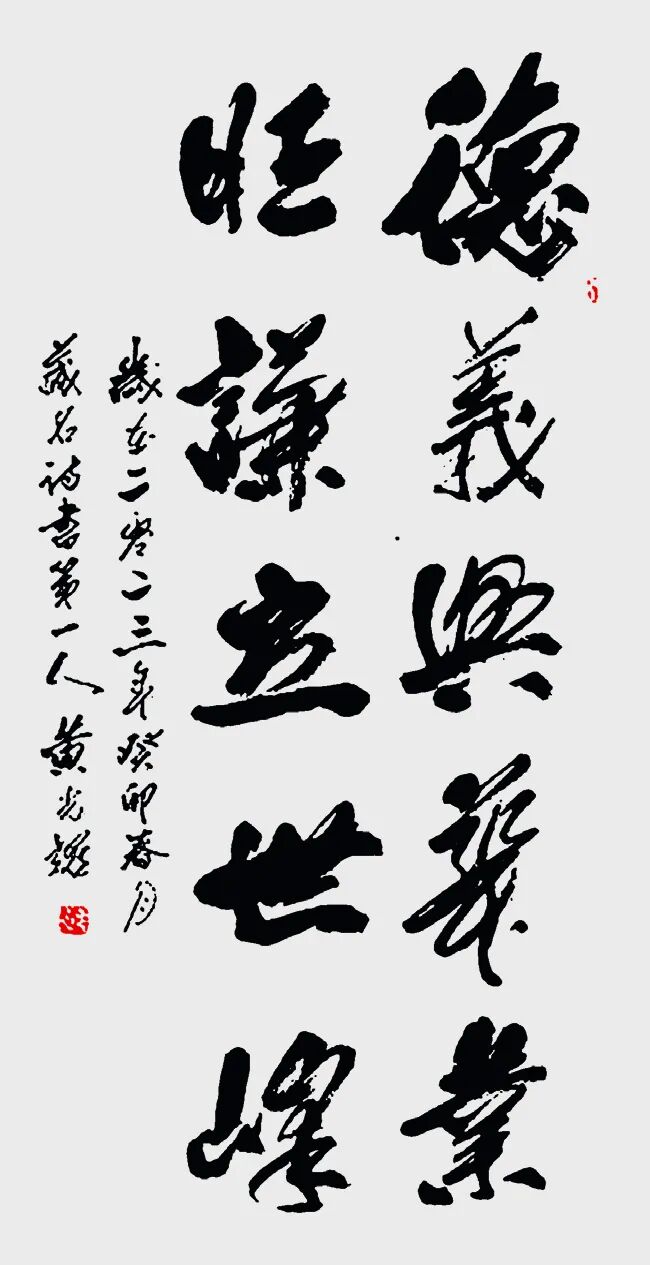 德義興業
旺謙立世峰
歲在二零二三年癸卯春月
藏名詩書第一人 黄光